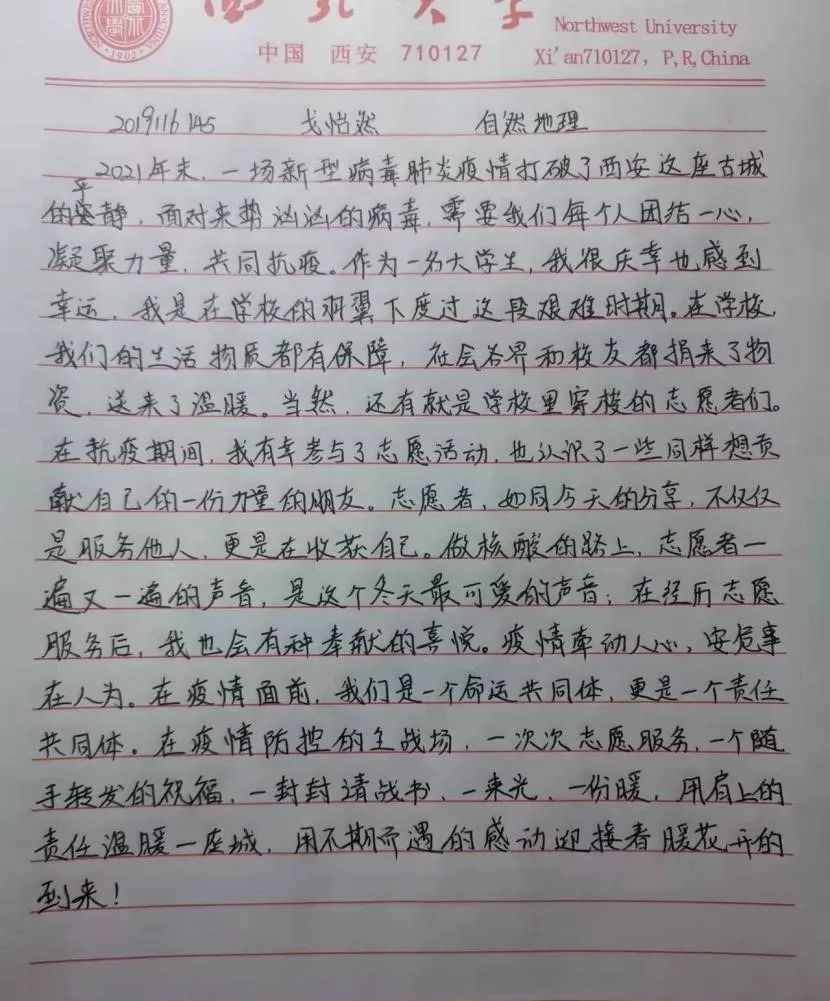 西北大学
Northwest University
中国 西安 710127
Xi'an710127, P,R,China
2019116145 戈怡然 自然地理
2021年末，一场新型病毒肺炎疫情打破了西安这座古城
的平静，面对来势汹汹的病毒，需要我们每个人团结一心，
凝聚力量，共同抗疫。作为一名大学生，我很庆幸也感到
幸运，我是在学校的羽翼下度过这段艰难时期。在学校，
我们的生活物质都有保障，社会各界和校友都捐来了物
资，送来了温暖。当然，还有就是学校里穿梭的志愿者们。
在抗疫期间，我有幸参与了志愿活动，也认识了一些同样想贡
献自己的一份力量的朋友。志愿者，如同今天的分享，不仅仅
是服务他人，更是在收获自己。做核酸的路上，志愿者一
遍又一遍的声音，是这个冬天最可爱的声音；在经历志愿
服务后，我也会有种奉献的喜悦。疫情牵动人心，安危事
在人为。在疫情面前，我们是一个命运共同体，更是一个责任
共同体。在疫情防控的主战场，一次次志愿服务，一个随
手转发的祝福，一封封请战书，一束光，一份暖，用肩上的
责任温暖一座城，用不期而遇的感动迎接春暖花开的
到来！